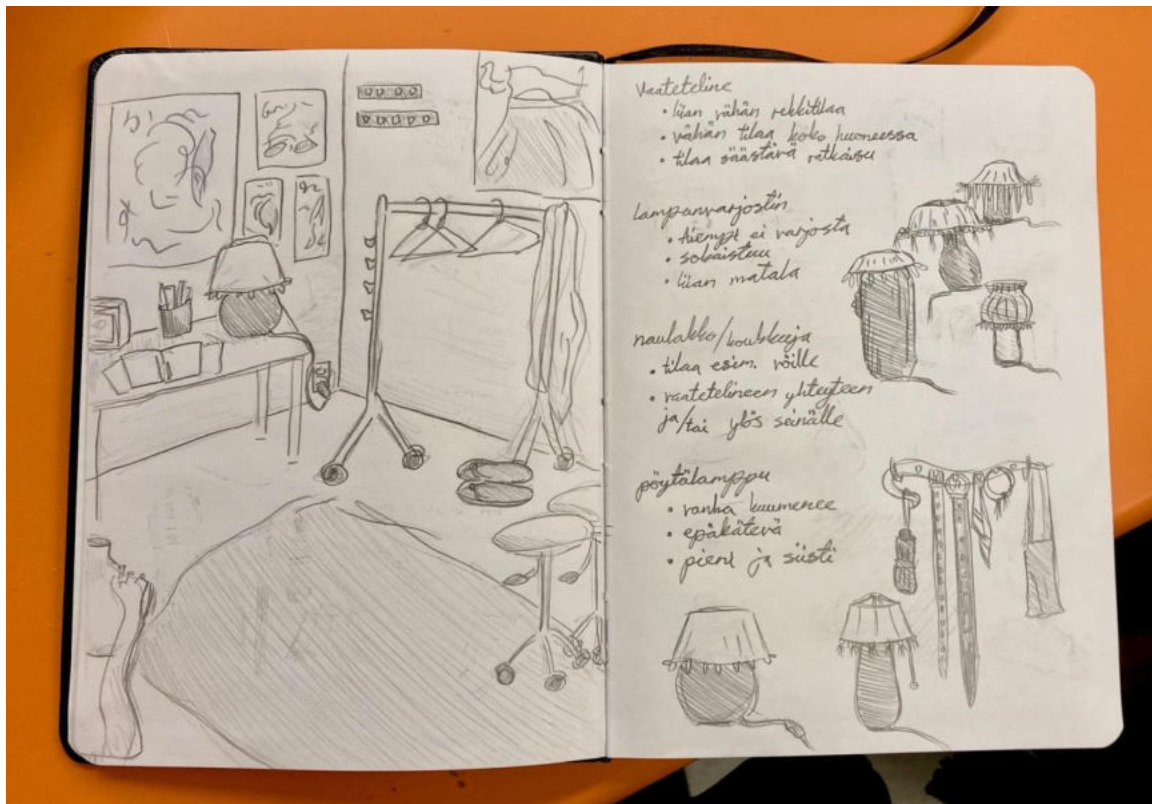 vaateteline
• liian vähän rekkitilaa
• vähän tilaa koko huoneessa
• tilaa säästävä ratkaisu
lampunvarjostin
• tiempi ei varjosta
• sokaistuu
• liian matala
naulakko/koukkuja
• tilaa esim. vöille
• vaatetelineen yhteyteen
ja/tai ylös seinälle
pöytälamppu
• vanha kuumenee
• epäkätevä
• pieni ja siisti